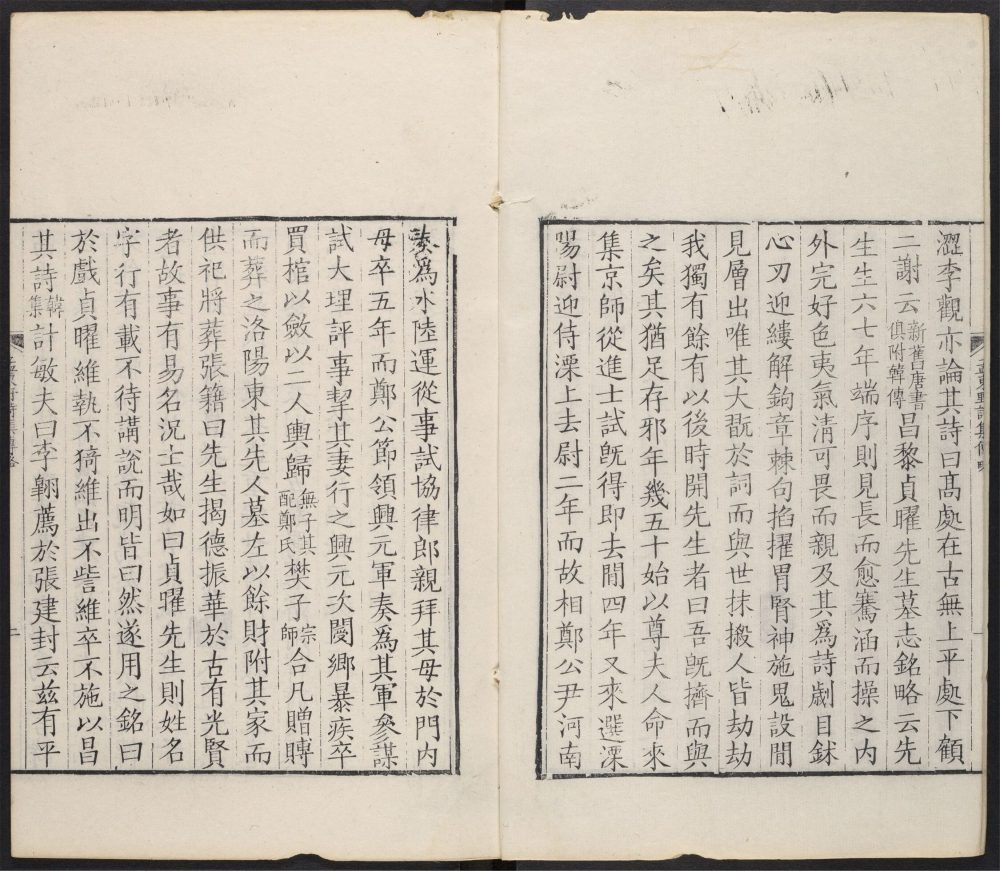 澀李觀亦論其詩曰高處在古無上平處下顧
二謝云新舊唐書俱附韓傳昌黎貞曜先生墓志銘略云先
生生六七年端序則見長而愈騫涵而揉之內
外完好色夷氣清可畏而親及其爲詩劌目鉥
心刃迎縷解鉤章棘句掐擢胃腎神施鬼設間
見層出唯其大翫於詞而與世抹摋人皆劫劫
我獨有餘有以後時開先生者曰吾旣擠而與
之矣其猶足存邪年幾五十始以尊夫人命來
集京師從進士試旣得即去間四年又來選溧
陽尉迎侍溧上去尉二年而故相鄭公尹河南
奏爲水陸運從事試協律郎親拜其母於門內
母卒五年而鄭公節領興元軍奏爲其軍參謀
試大理評事挈其妻行之興元次閿鄉暴疾卒
買棺以斂以二人輿歸無子其配鄭氏樊子宗師合凡贈賻
而葬之洛陽東其先人墓左以餘財附其家而
供祀將葬張籍曰先生揭德振華於古有光賢
者故事有易名況士哉如曰貞曜先生則姓名
字行有載不待講說而明皆曰然遂用之銘曰
於戲貞曜維執不猗維出不訾維卒不施以昌
其詩韓集計敏夫曰李翺薦於張建封云兹有平